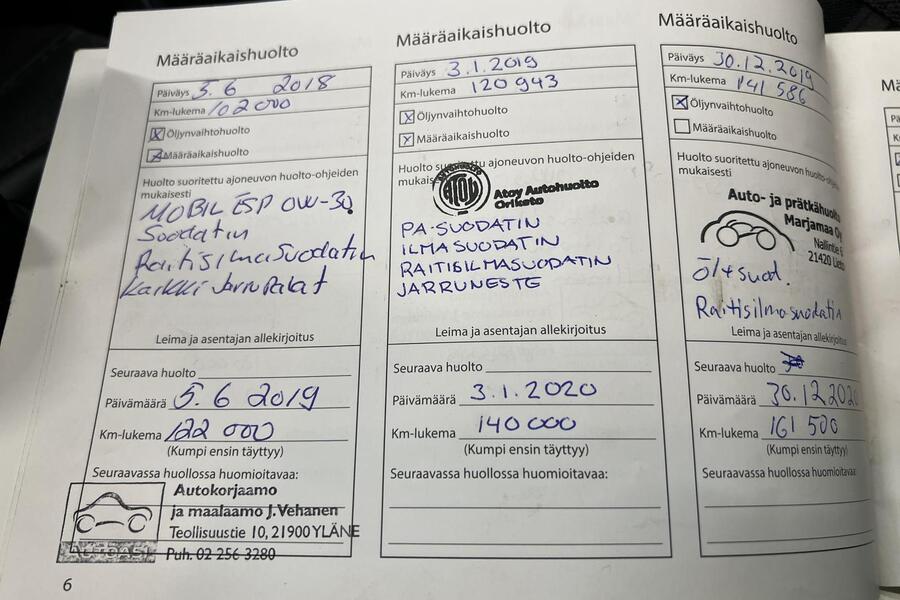 Määräaikaishuolto
Päiväys 5.6 2018
Km-lukema 102 000
Öljynvaihtohuolto
Määräaikaishuolto
Huolto suoritettu ajoneuvon huolto-ohjeiden
mukaisesti
MOBIL ESP 0W-30.
Suodatin
Raitisilmasuodatin
Kaikki Jarrupalat
Leima ja asentajan allekirjoitus
Seuraava huolto
Päivämäärä 5.6 2019
Km-lukema 122 000
(Kumpi ensin täyttyy)
Seuraavassa huollossa huomioitavaa:
Autokorjaamo
ja maalaamo J.Vehanen
Teollisuustie 10, 21900 YLÄNE
AUTOASI
Puh. 02 256 3280
6
Määräaikaishuolto
Päiväys 3.1.2019
Km-lukema 120 943
Öljynvaihtohuolto
Määräaikaishuolto
Huolto suoritettu ajoneuvon huolto-ohjeiden
mukaisesti
AUTOHUOLTO
ATOY
Atoy Autohuolto
Oriketo
PA-SUODATIN
ILMASUODATIN
RAITISILMASUODATIN
JARRUNESTE
Leima ja asentajan allekirjoitus
Seuraava huolto
Päivämäärä 3.1.2020
Km-lukema 140 000
(Kumpi ensin täyttyy)
Seuraavassa huollossa huomioitavaa:
Määräaikaishuolto
Päiväys 30.12.2019
Km-lukema 141 586
Öljynvaihtohuolto
Määräaikaishuolto
Huolto suoritettu ajoneuvon huolto-oh
mukaisesti
Auto- ja prätkähuolto
Marjamaa Oy
Nallintie 6
21420 Lieto
Öl+suod.
Raitisilmasuodatin
Leima ja asentajan allekirjoitus
Seuraava huolto
Päivämäärä 30.12.2020
Km-lukema 161 500
(Kumpi ensin täyttyy)
Seuraavassa huollossa huomioitavaa:
Mä